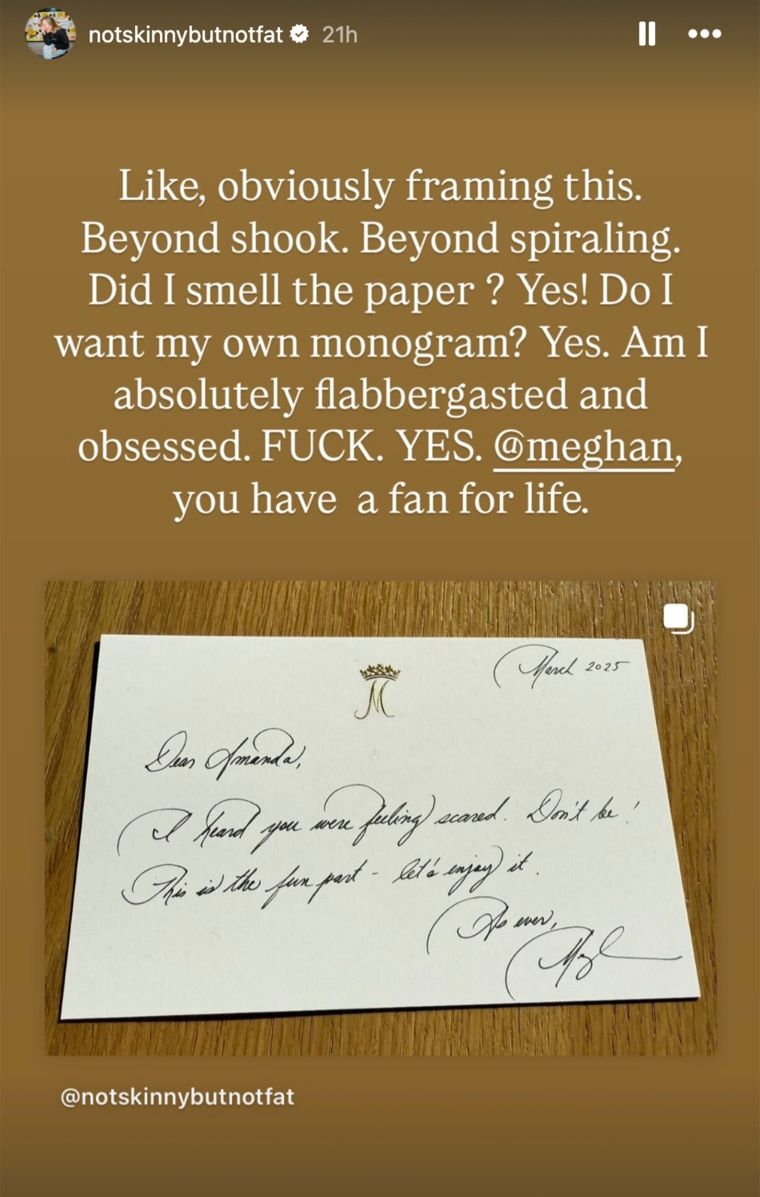 notskinnybutnotfat 21h
Like, obviously framing this.
Beyond shook. Beyond spiraling.
Did I smell the paper ? Yes! Do I
want my own monogram? Yes. Am I
absolutely flabbergasted and
obsessed. FUCK. YES. @meghan,
you have a fan for life.
M
March 2025
Dear Amanda,
I heard you were feeling scared. Don't be!
This is the fun part - let's enjoy it.
As ever,
@notskinnybutnotfat